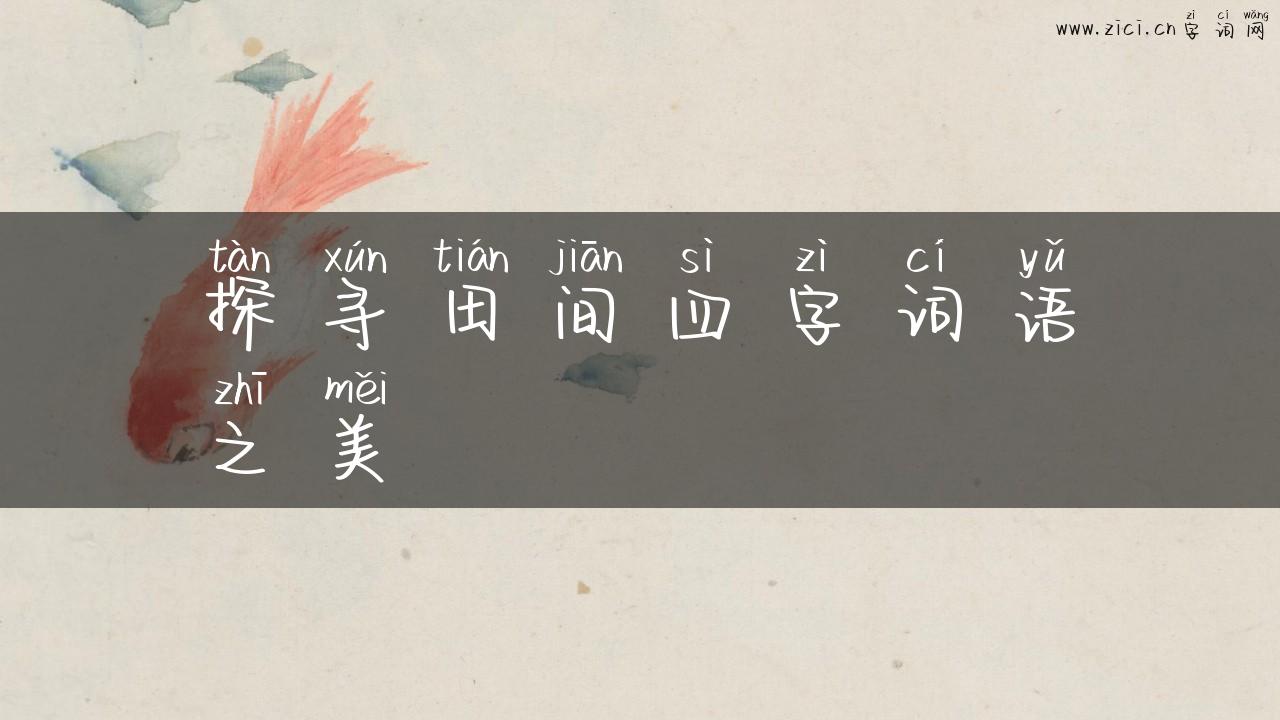 www.zici.cn字词网
zì cí wǎng
tàn xún tián jiān sì zì cí yǔ
探寻田间四字词语
zhī měi
之美